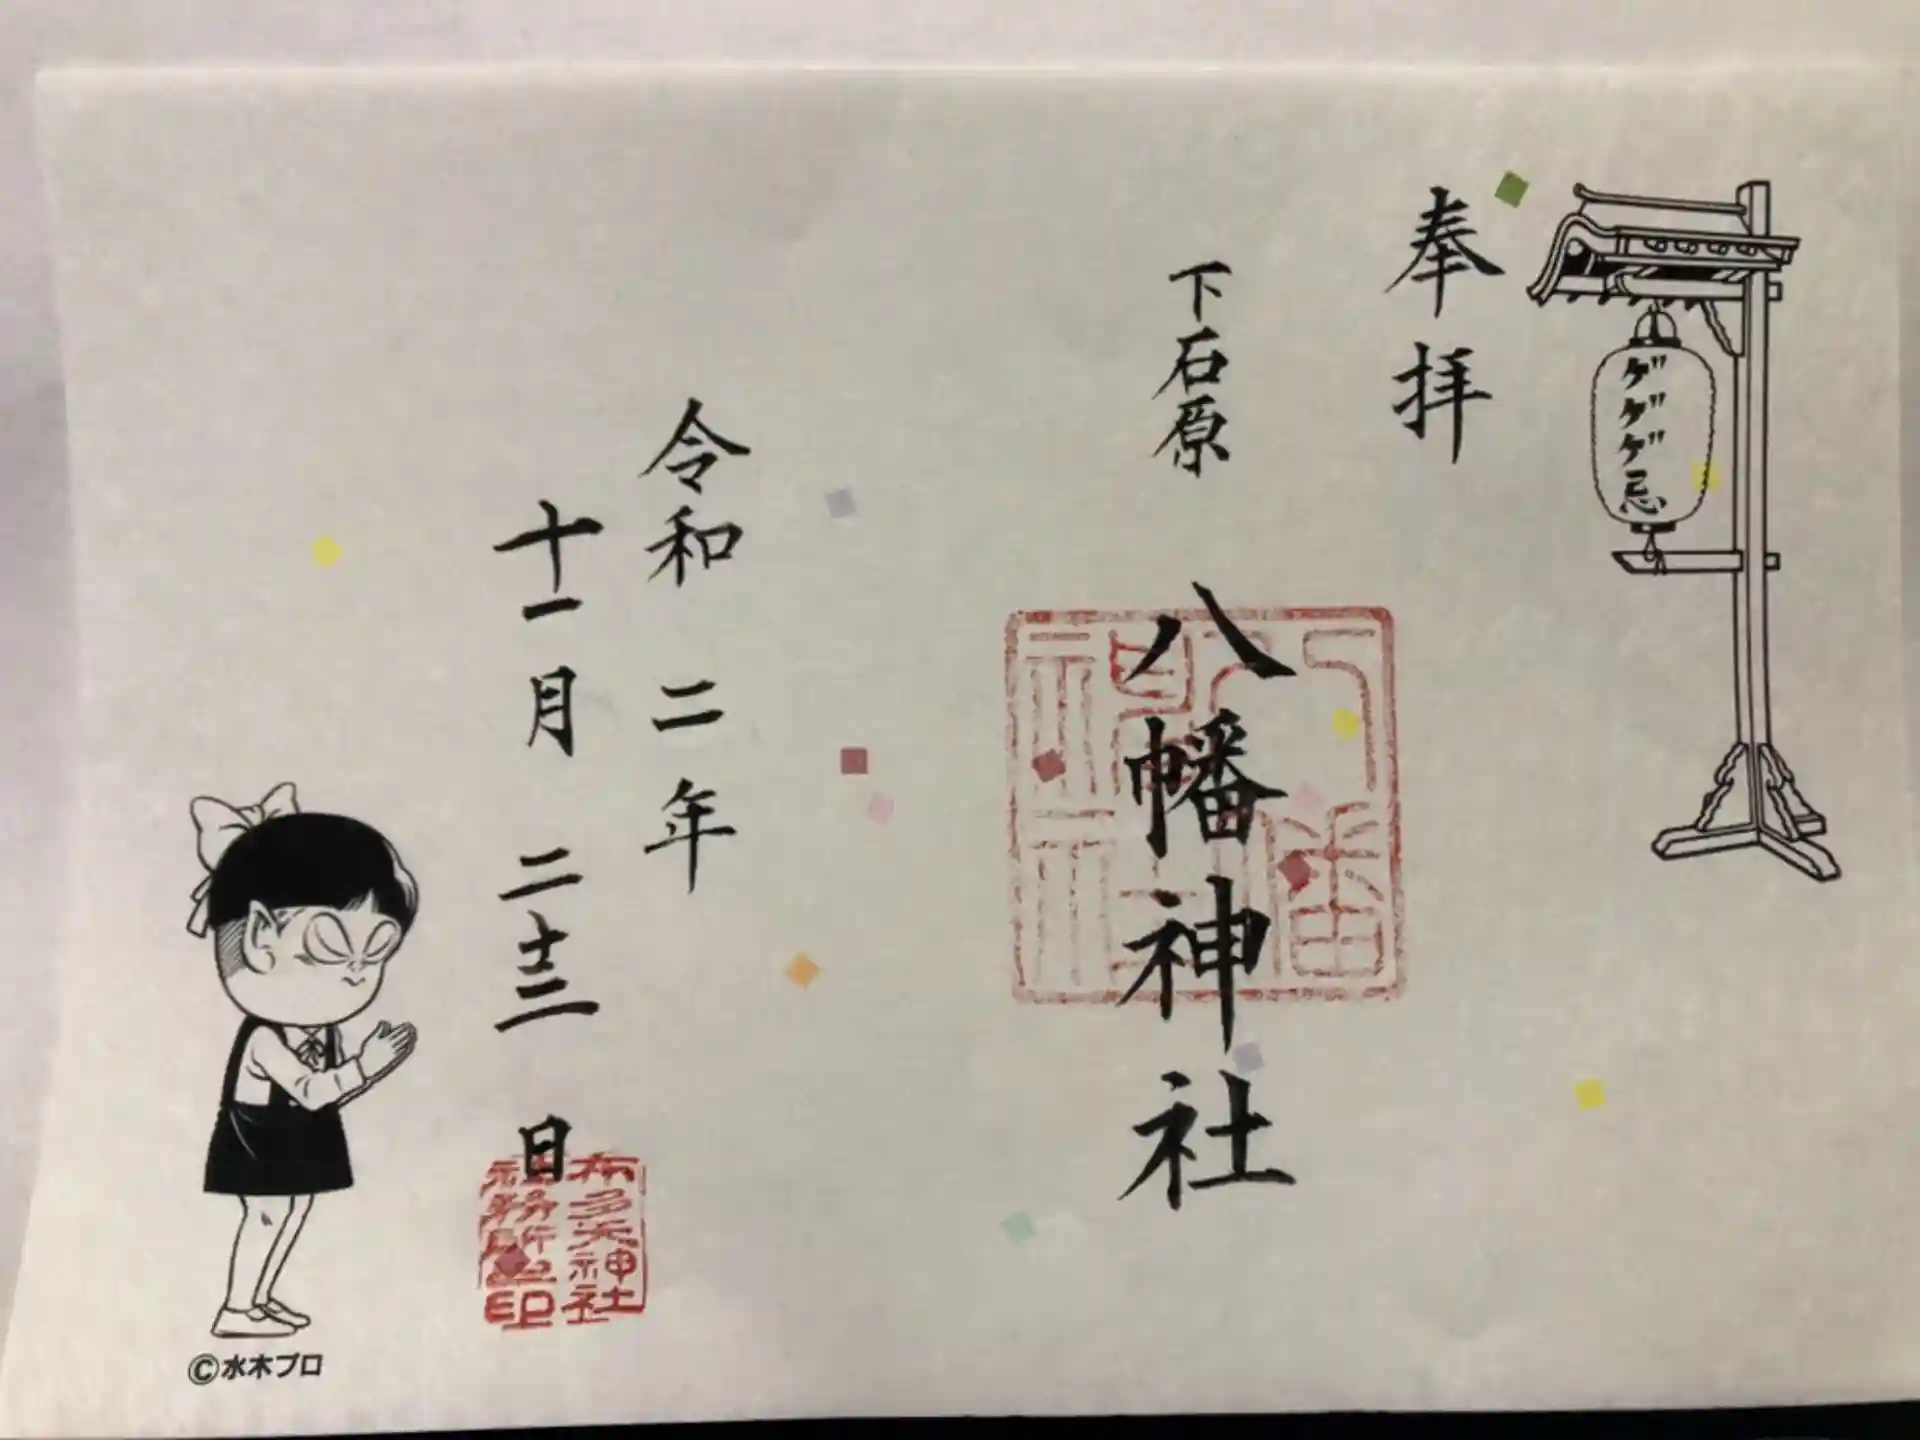 ゲゲゲ忌
奉拝
下石原
八幡神社
令和二年
十一月二十三日
布多天神社
社務所之印
©水木プロ